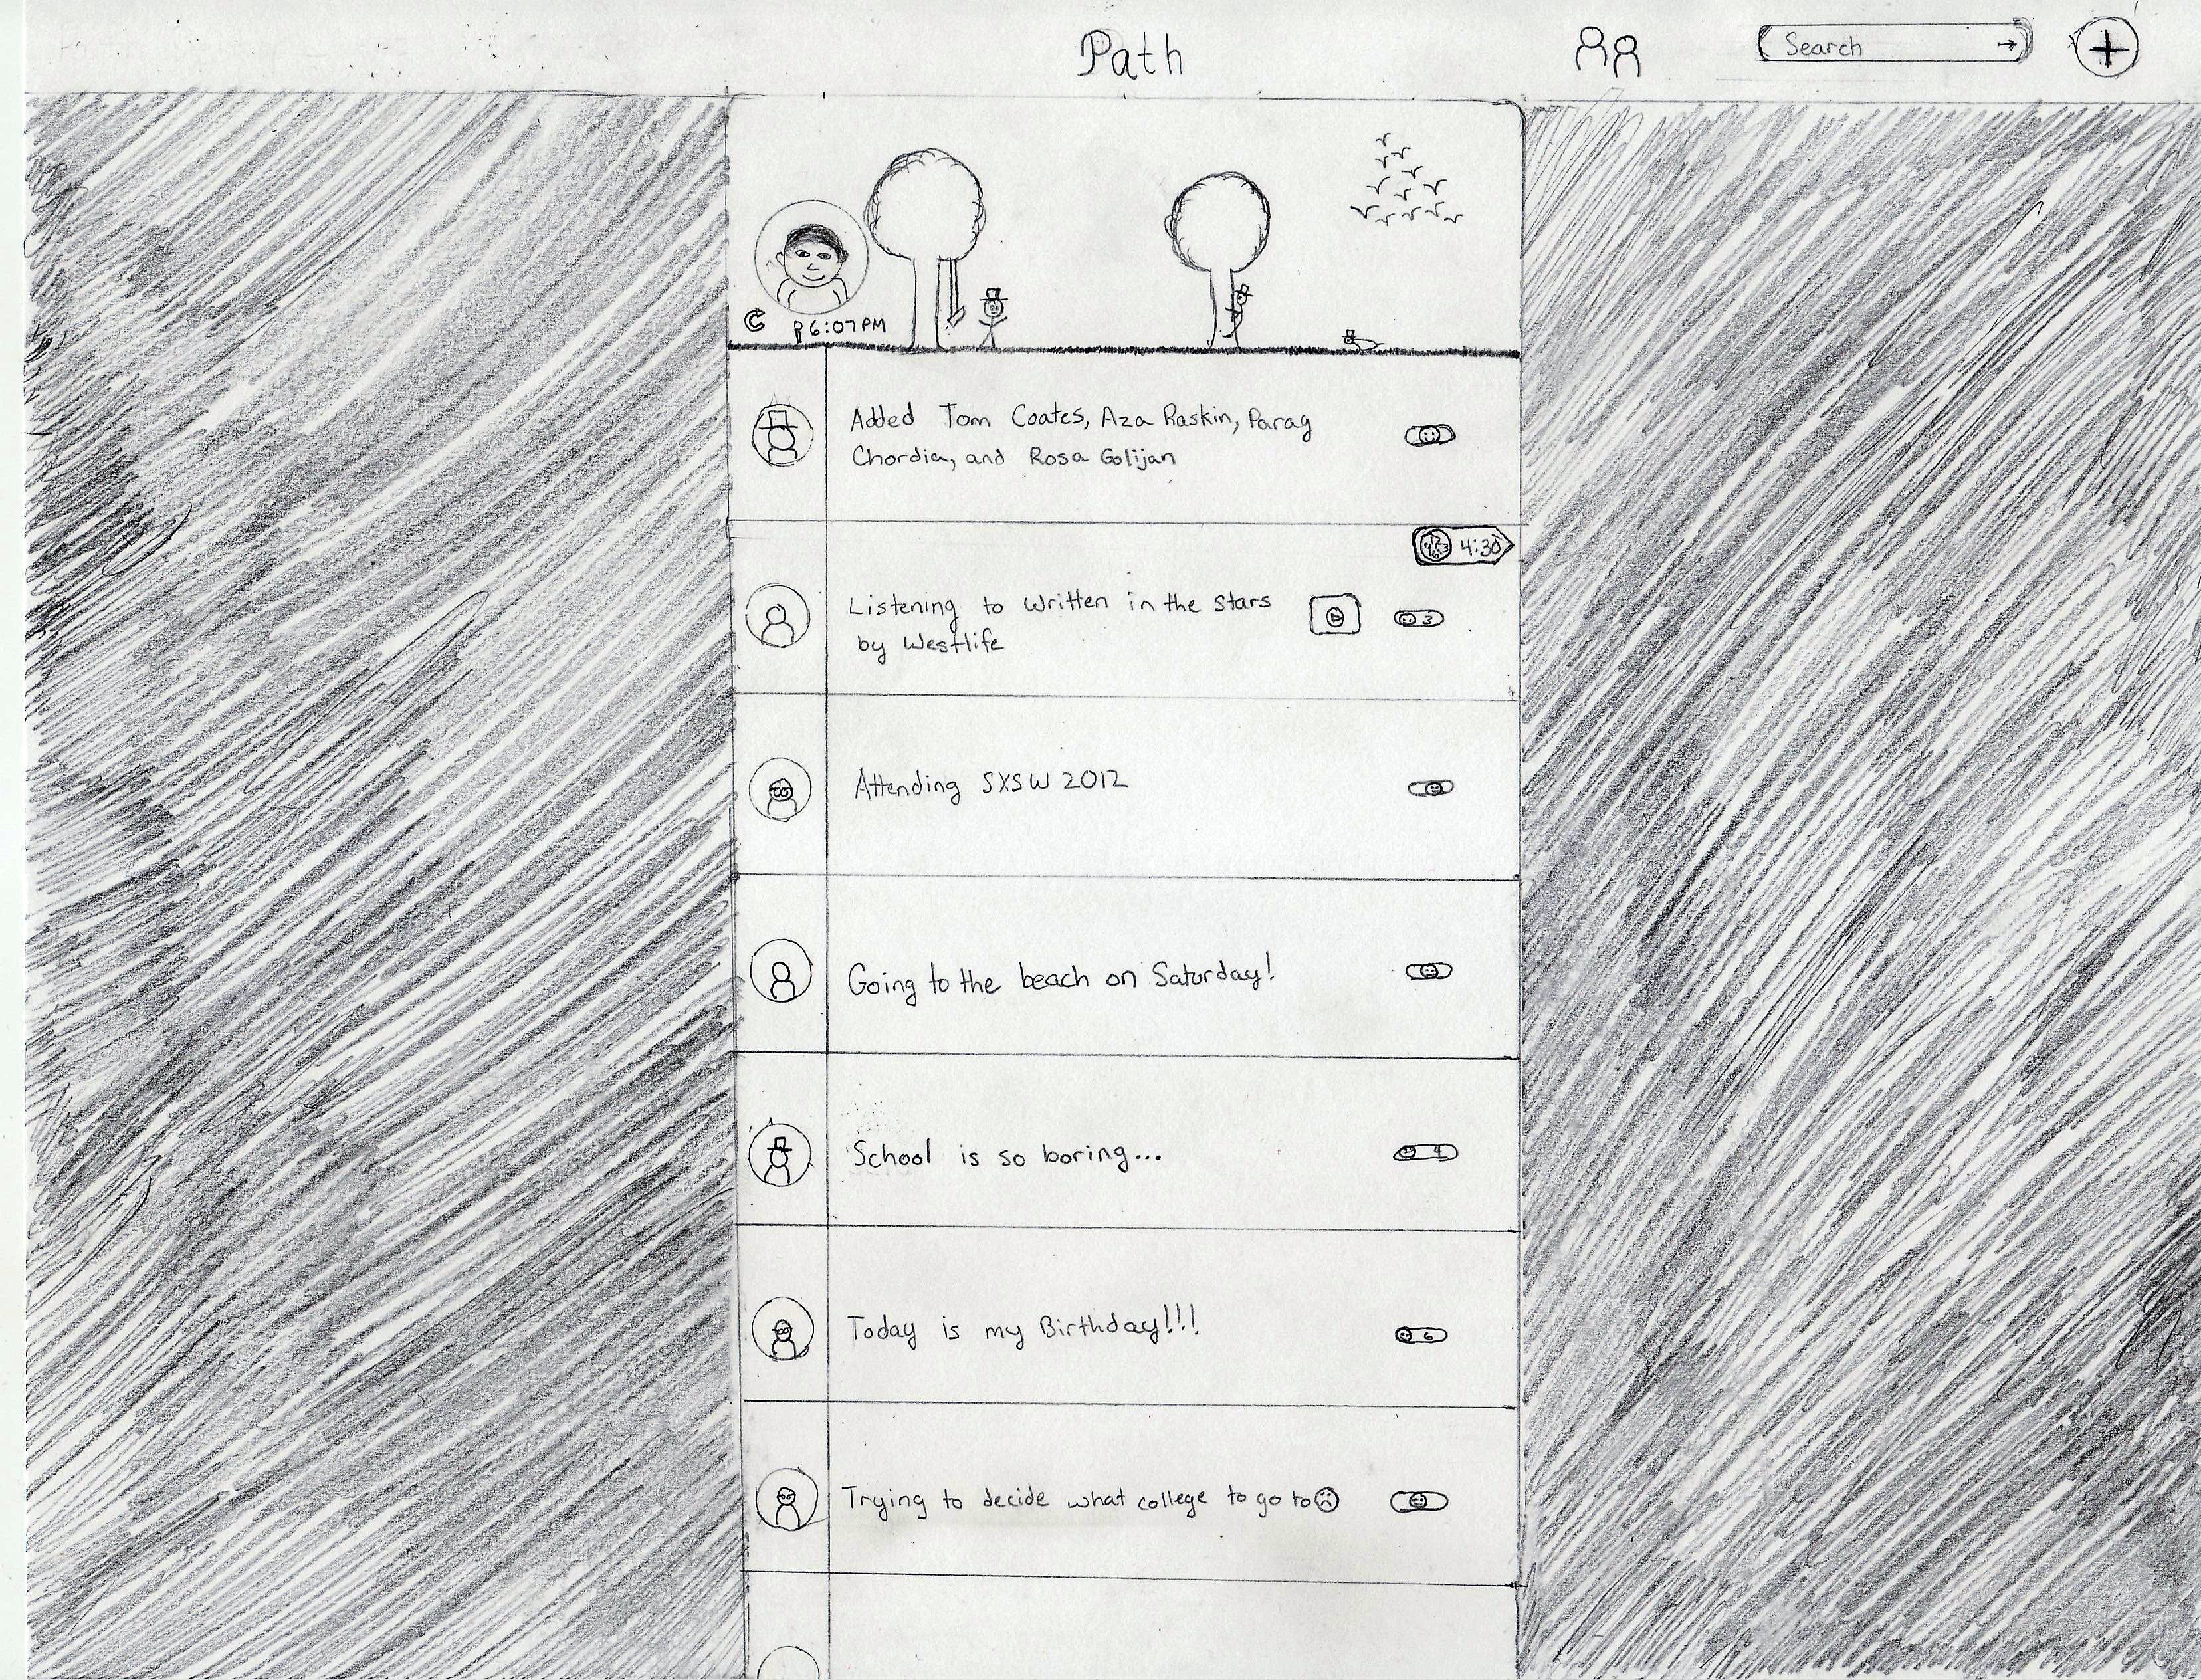 Path
Search
6:07PM
Added Tom Coates, Aza Raskin, Parag
Chordia, and Rosa Golijan
4:30
Listening to Written in the Stars
by Westlife
3
Attending SXSW 2012
Going to the beach on Saturday!
School is so boring...
4
Today is my Birthday!!!
6
Trying to decide what college to go to